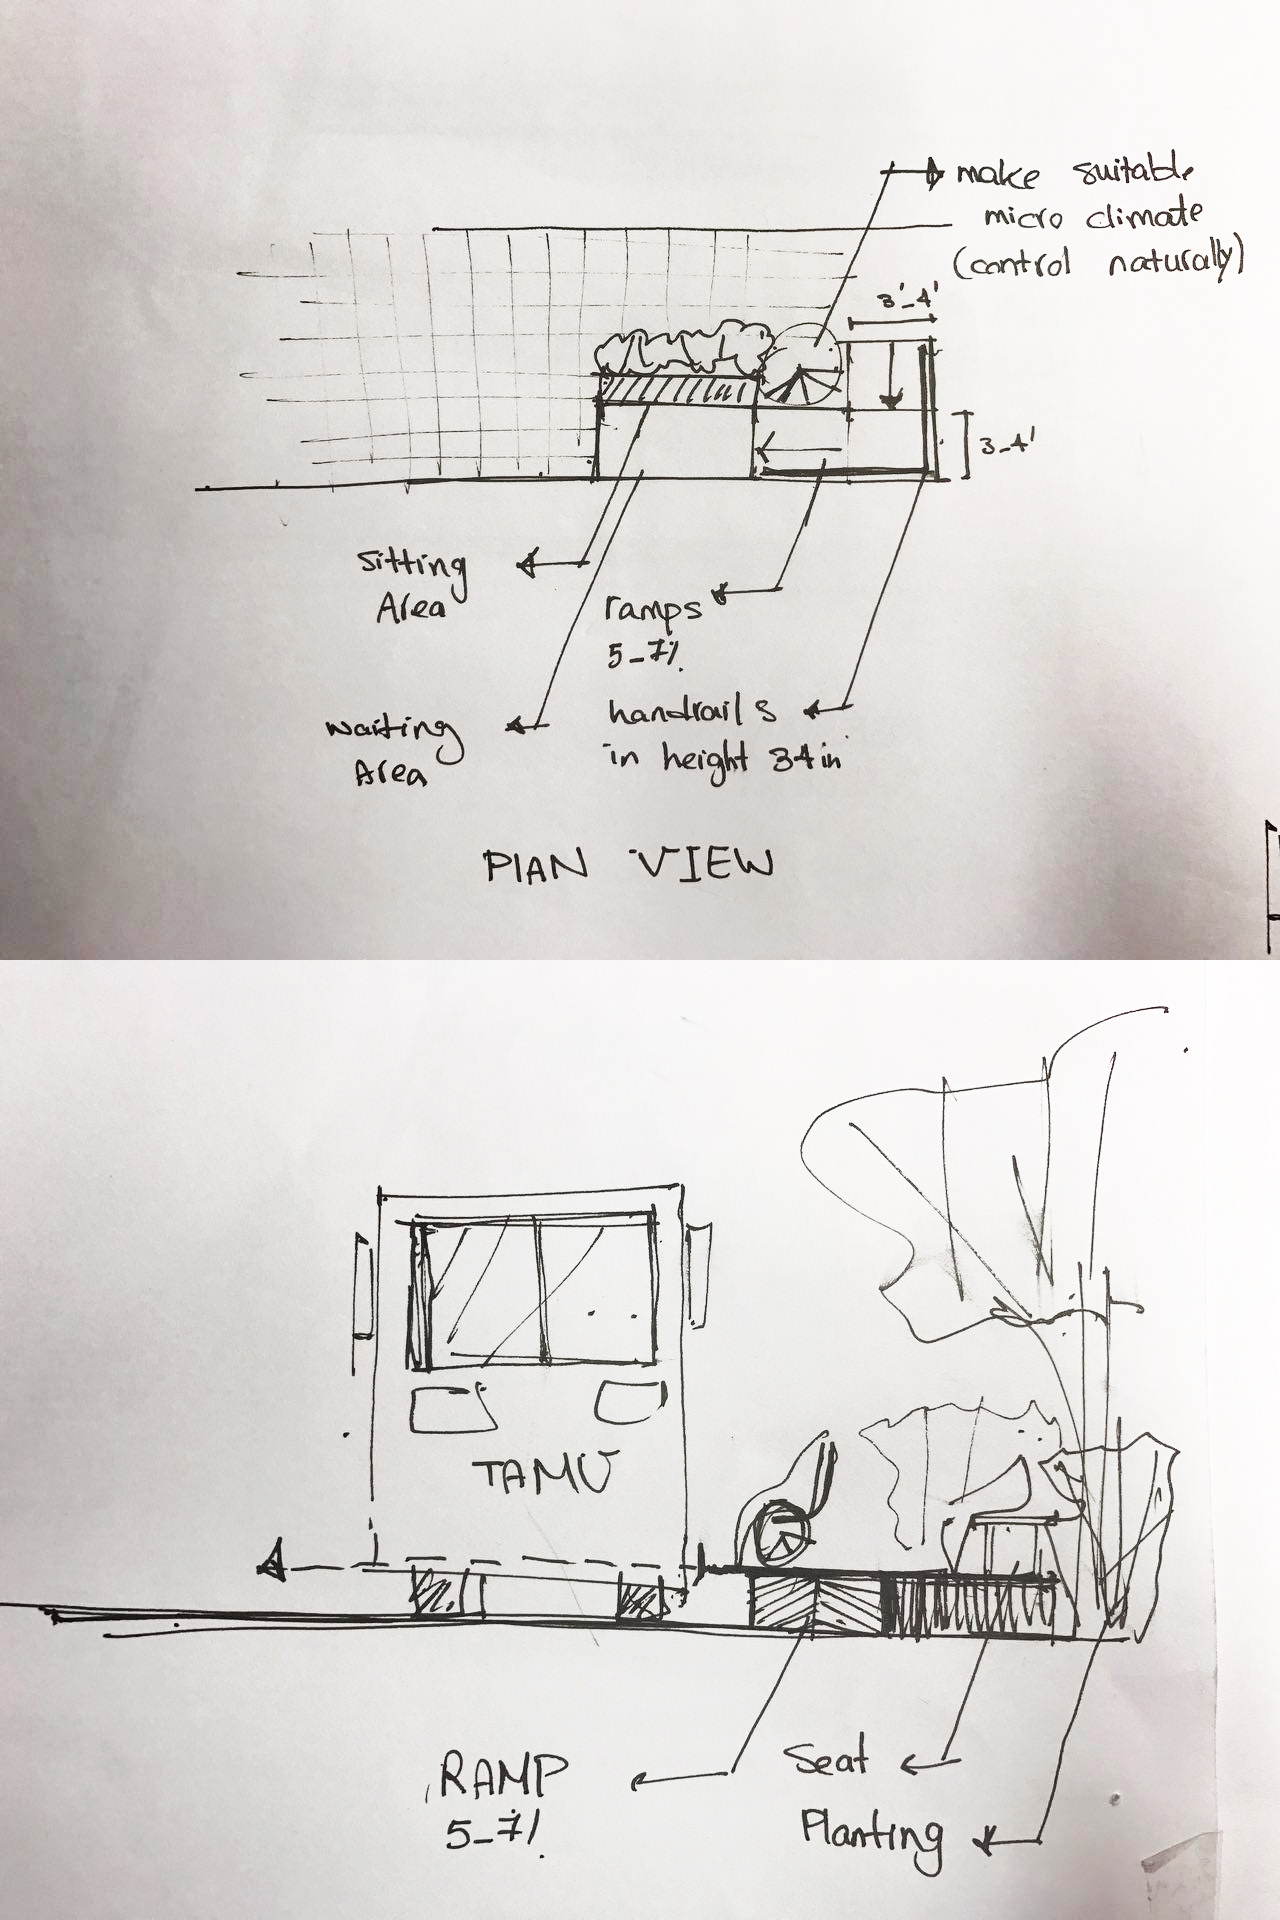 make suitable
micro climate
(control naturally)
3'-4'
3-4'
Sitting
Area
ramps
5-7%
waiting
Area
handrails
in height 34in
PLAN VIEW
TAMU
RAMP
5-7%
Seat
Planting